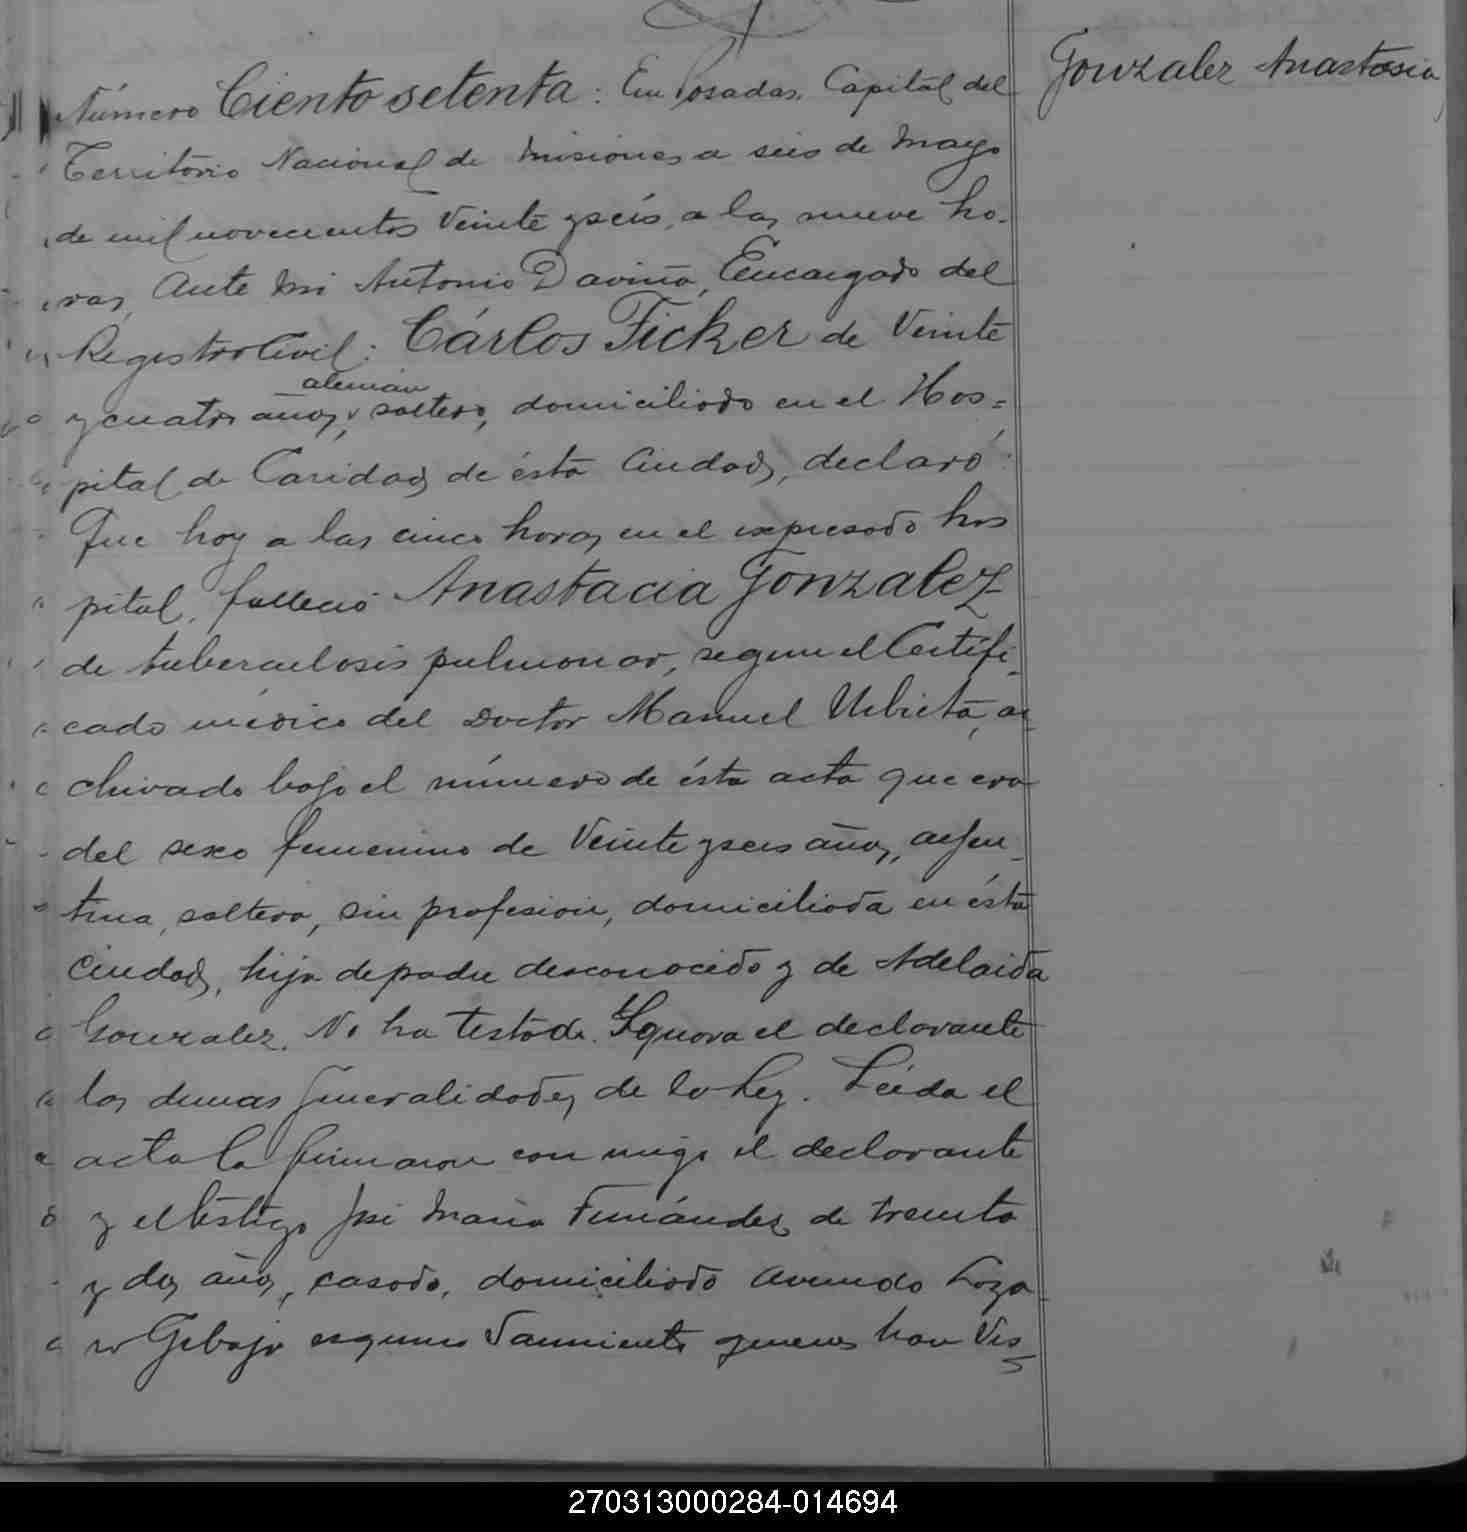 Gonzalez Anastasia
Número Ciento setenta: En Posadas, Capital del
Territorio Nacional de Misiones a seis de Mayo
de mil novecientos Veinte y seis, a las nueve ho-
ras, Ante mi Antonio Daviña, Encargado del
Registro Civil: Cárlos Ficker de Veinte
alemán
y cuatro años, soltero, domiciliado en el Hos=
pital de Caridad de ésta Ciudad, declaró:
Que hoy a las cinco horas en el expresado hos
pital, falleció Anastacia Gonzalez
de tuberculosis pulmonar, segun el Certifi-
cado médico del Doctor Manuel Urbieta, ar-
chivado bajo el número de ésta acta que era
del sexo femenino de Veinte y seis años, argen-
tina, soltera, sin profesion, domiciliada en ésta
Ciudad, hija de padre desconocido y de Adelaida
Gonzalez. No ha testado. Ygnora el declarante
las demas generalidades de la Ley. Leida el
acta la firmaron con migo el declarante
y el testigo José Maria Fernández de treinta
y dos años, casado, domiciliado Avenida
esquina Sarmiento quienes han Vis
270313000284-014694